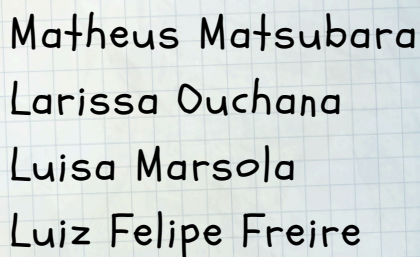 Matheus Matsubara
Larissa Ouchana
Luisa Marsola
Luiz Felipe Freire